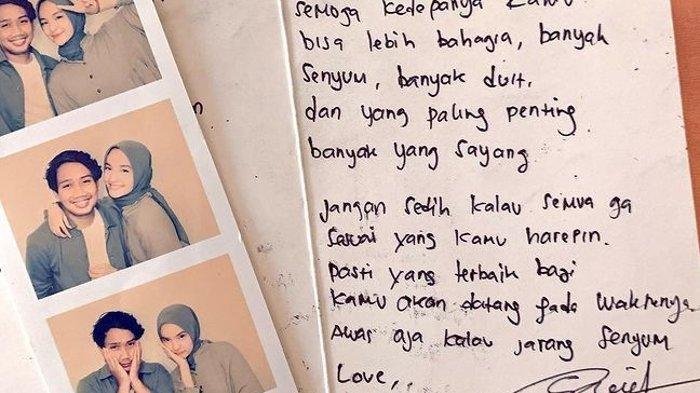 semoga kedepanya kamu
bisa lebih bahagia, banyak
senyum, banyak duit.
dan yang paling penting
banyak yang sayang
Jangan sedih kalau semua ga
sesuai yang kamu harepin.
Pasti yang terbaik bagi
kamu akan datang pada waktunya
Awas aja kalau jarang senyum
Love,